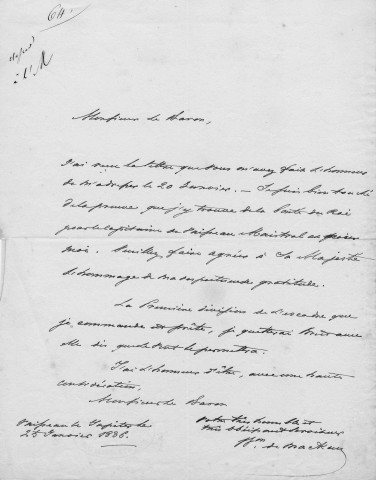 64.
Monsieur le Baron,
J'ai reçu la lettre que vous m'avez fait l'honneur
de m'adresser le 20 Janvier. — Je suis bien touché
de la preuve que j'y trouve de la bonté du Roi
pour le Capitaine de Vaisseau
moi. Veuillez faire agréer à Sa Majesté
l'hommage de ma respectueuse gratitude.
La Première division de l'escadre que
je commande est prête, je quitterai Brest avec
elle dès que le vent le permettra.
J'ai l'honneur d'être, avec une haute
considération,
Monsieur le Baron
Vaisseau le Jupiter le
25 Janvier 1836.
votre très humble et
très obéissant serviteur
Bon de Mackau